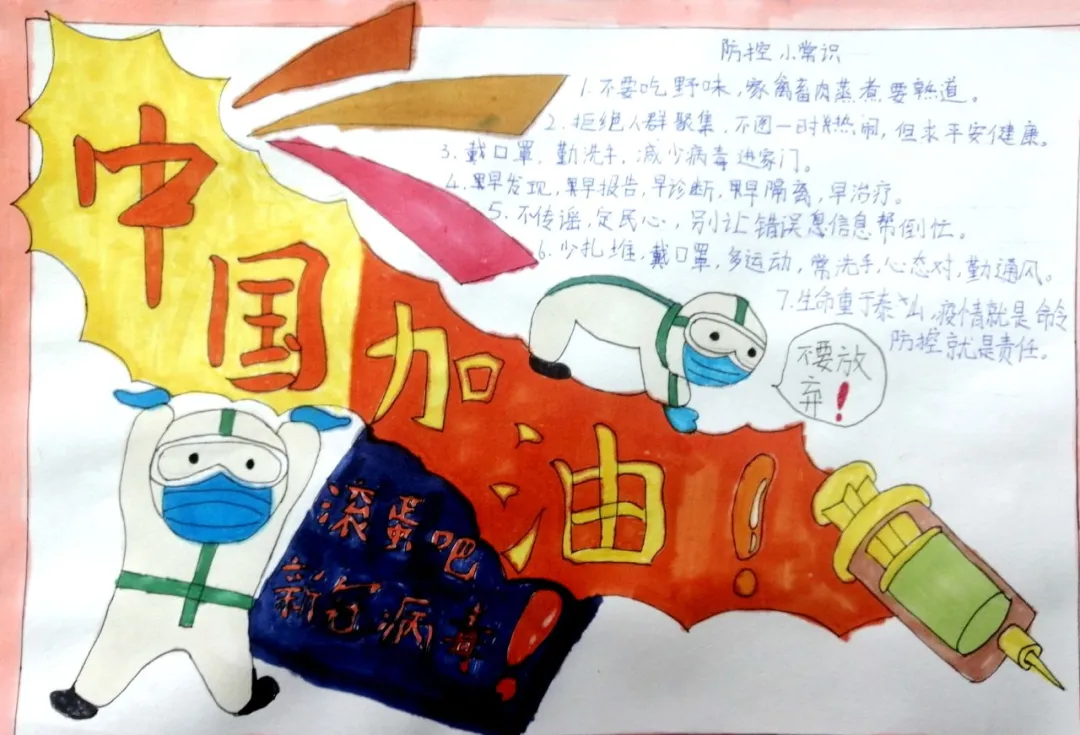 中国
加油！
滚蛋吧
新冠病毒！
防控小常识
1.不要吃野味,家禽畜肉蒸煮要熟道。
2.拒绝人群聚集,不图一时热闹,但求平安健康。
3.戴口罩,勤洗手,减少病毒进家门。
4.早发现,早报告,早诊断,早隔离,早治疗。
5.不传谣,定民心,别让错误息信息帮倒忙。
6.少扎堆,戴口罩,多运动,常洗手,心态对,勤通风。
7.生命重于泰山,疫情就是命令
防控就是责任。
不要放
弃！